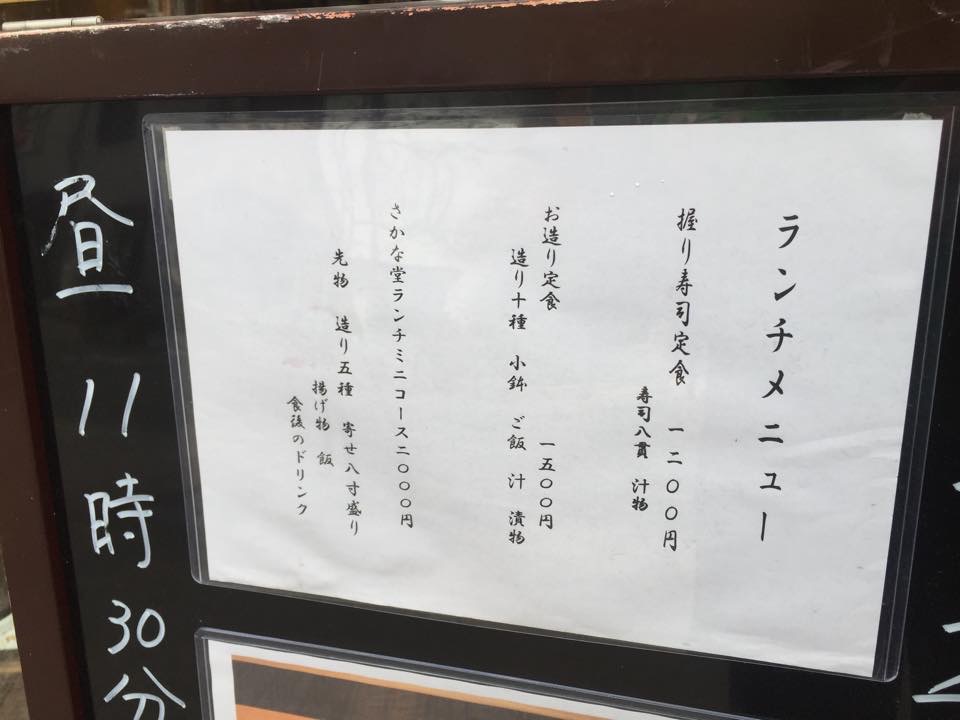 ランチメニュー
握り寿司定食 一二〇〇円
寿司八貫 汁物
お造り定食 一五〇〇円
造り十種 小鉢 ご飯 汁 漬物
さかな堂ランチミニコース二〇〇〇円
先物 造り五種 寄せ八寸盛り
揚げ物 飯
食後のドリンク
昼11時30分